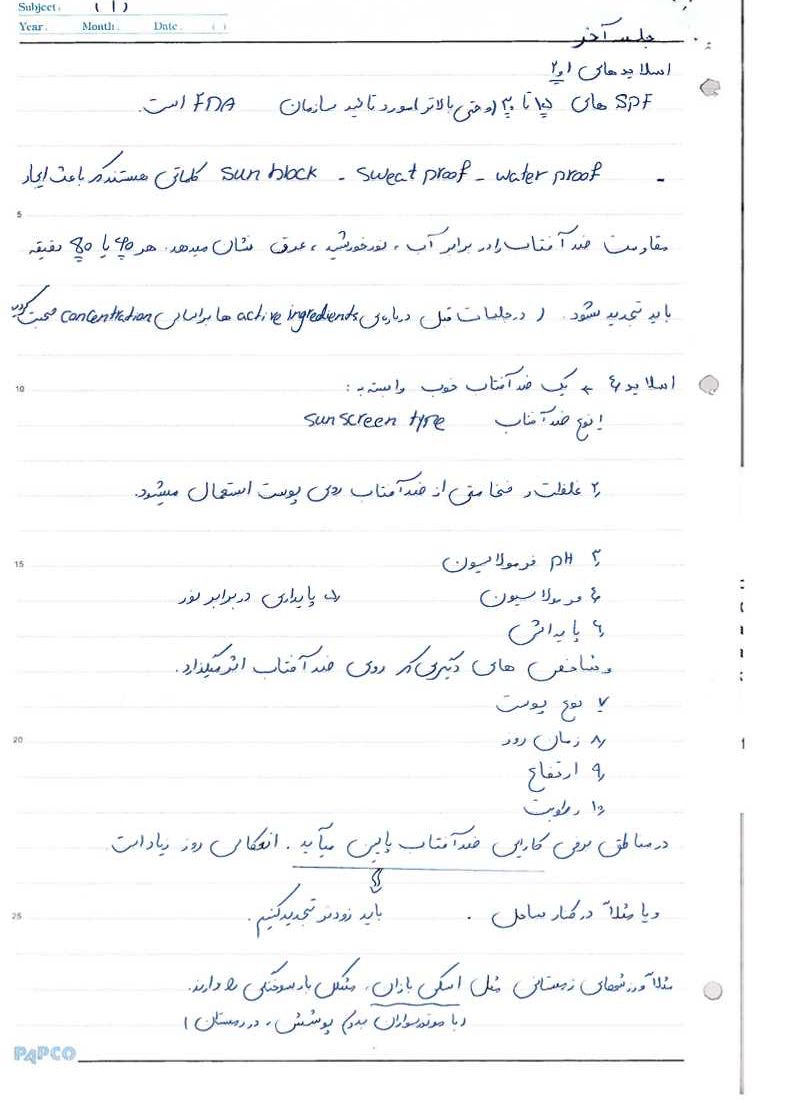 Subject: (1)
Year. Month. Date. ( )
جلسه آخر
اسلایدهای ۱و۲
SPF های ۱۵ تا ۳۰ (و حتی بالاتر) مورد تائید سازمان FDA است.
- water proof - sweat proof - sun block کلماتی هستند که باعث ایجاد
5
مقاومت ضدآفتاب را در برابر آب، نورخورشید، عرق نشان میدهد. هر ۴۰ یا 80 دقیقه
باید تجدید شود. (در جلسات قبل درباره‌ی active ingredients ها براساس concentration صحبت کردیم
اسلاید ۴ ← یک ضدآفتاب خوب وابسته به:
10
۱) نوع ضدآفتاب sunscreen type
۲) غلظت و ضخامتی از ضدآفتاب روی پوست استعمال میشود.
15
۳) pH فرمولاسیون
۴) فرمولاسیون ۵) پایداری در برابر نور
۶)
و شاخص های دیگری که روی ضدآفتاب اثر میگذارد.
۷) نوع پوست
20
۸) زمان روز
۹) ارتفاع
۱۰) رطوبت
در مناطق برفی کارایی ضدآفتاب پایین میآید. انعکاس روز زیاد است.
25
و یا مثلاً در کنار ساحل. باید زودتر تجدید کنیم.
مثلاً ورزشهای زمستانی مثل اسکی بازان، مشکل سوختگی را دارند.
(یا موتورسواران بدون پوشش، در زمستان)
PAPCO